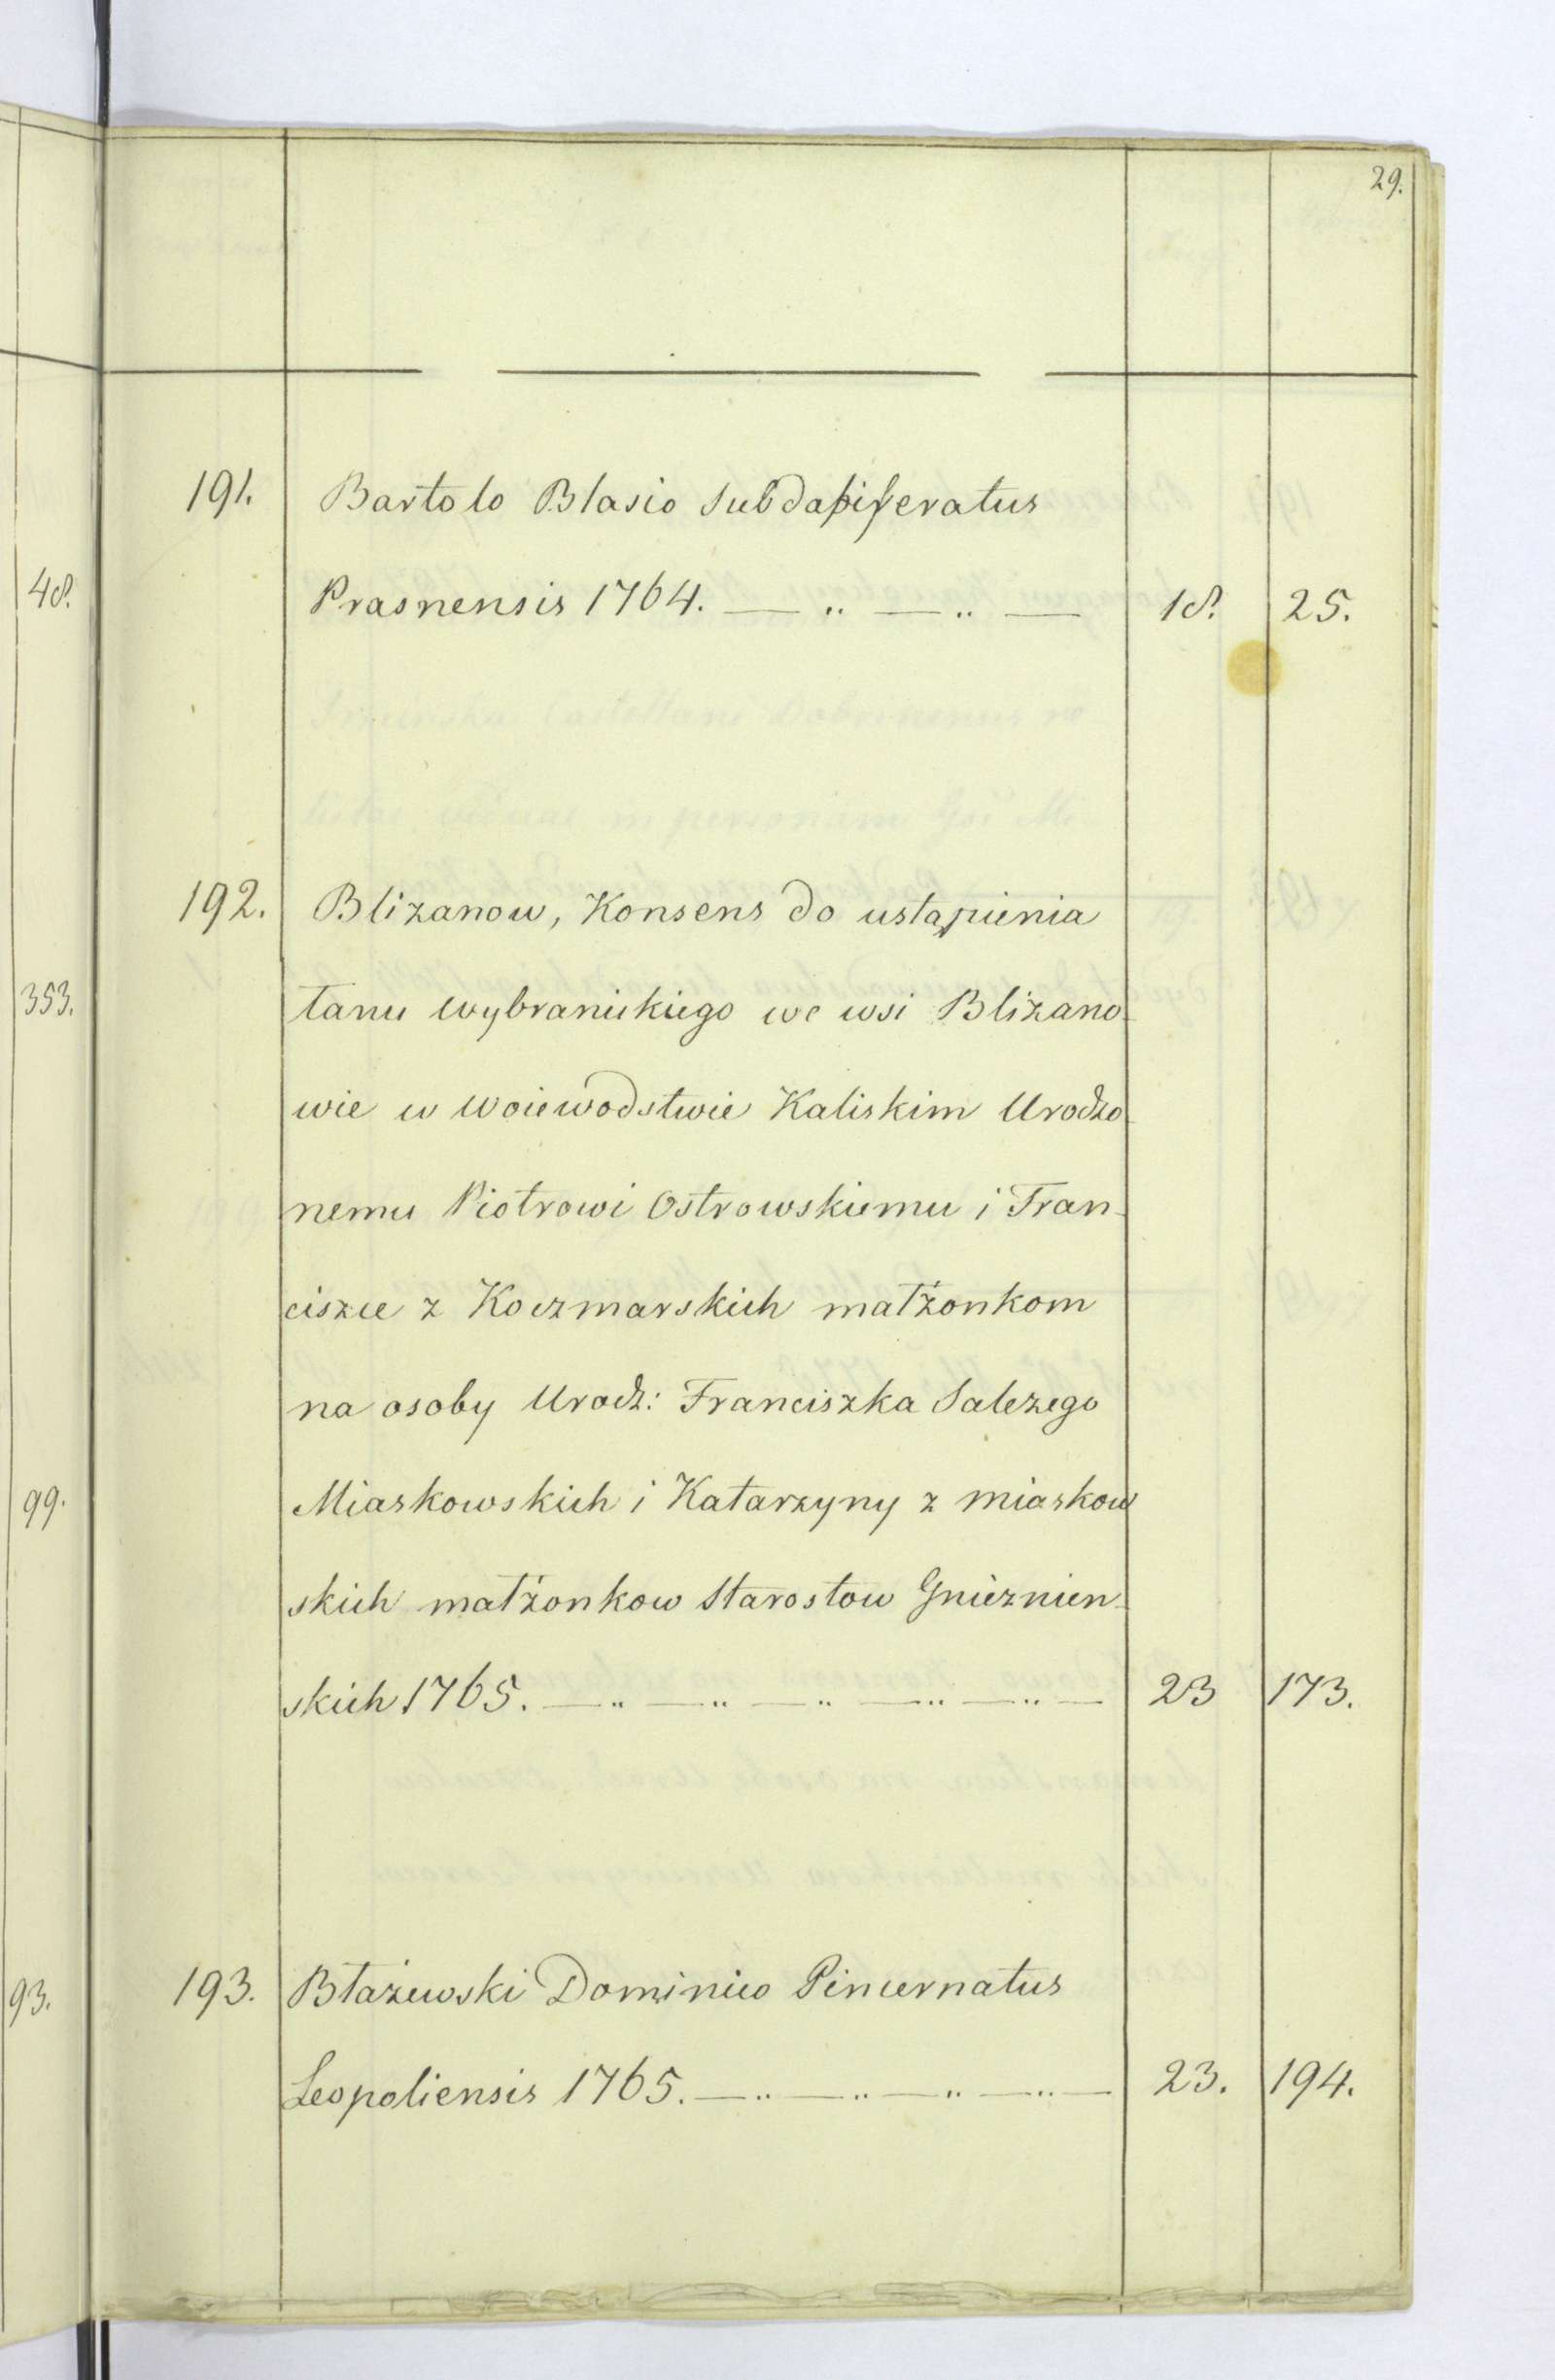 29.
191. Bartolo Blasio Subdapiferatus
Prasnensis 1764. — „ — „ — 18. 25.
192. Blizanow, Konsens do ustąpienia
łanu wybranickiego we wsi Blizano-
wie w Woiewodstwie Kaliskim Urodzo-
nemu Piotrowi Ostrowskiemu i Fran-
ciszce z Koczmarskich małżonkom
na osoby Urodz: Franciszka Salezego
Miaskowskich i Katarzyny z Miaskow
skich małżonkow Starostow Gnieznien-
skich 1765. — „ — „ — „ — „ — „ — 23 173.
193. Błażewski Dominico Pincernatus
Leopoliensis 1765. — „ — „ — „ — „ — 23. 194.
48.
353.
99.
93.